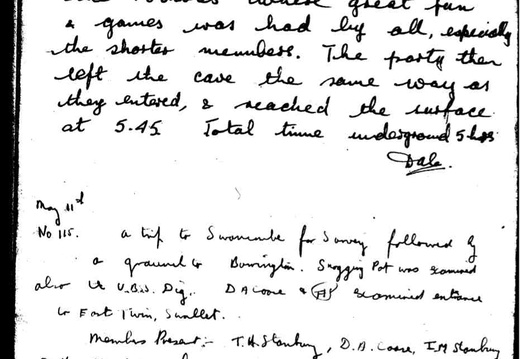 great fun
& games was had by all, especially
the shorter members. The party then
left the cave the same way as
they entered, & reached the surface
at 5.45 Total time underground 5 hrs
May 11th
No 115. a trip to Swancombe for Survey followed by
a to Burrington. Pot was examined
also U.B.S. Dig. examined entrance
to East Twin, Swallet.
Members Present:- T.H. Stanbury, D.A. Coase, I.M. Stanbury